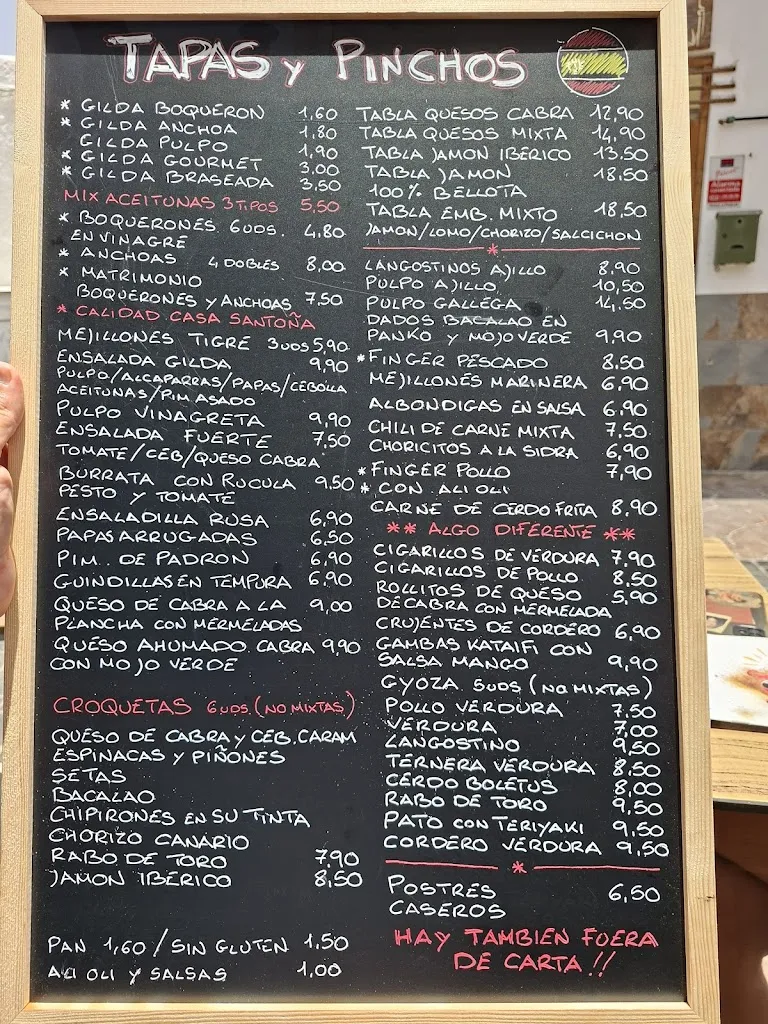 TAPAS y PINCHOS
* GILDA BOQUERON 1,60
* GILDA ANCHOA 1,80
GILDA PULPO 1,90
* GILDA GOURMET 3,00
* GILDA BRASEADA 3,50
MIX ACEITUNAS 3 TIPOS 5,50
* BOQUERONES 6 UDS. 4,80
EN VINAGRE
* ANCHOAS 4 DOBLES 8,00
* MATRIMONIO
BOQUERONES Y ANCHOAS 7,50
* CALIDAD CASA SANTOÑA
MEJILLONES TIGRE 3 UDS 5,90
ENSALADA GILDA 9,90
PULPO/ALCAPARRAS/PAPAS/CEBOLLA
ACEITUNAS/PIM ASADO
PULPO VINAGRETA 9,90
ENSALADA FUERTE 7,50
TOMATE/CEB/QUESO CABRA
BURRATA CON RUCULA 9,50
PESTO Y TOMATE
ENSALADILLA RUSA 6,90
PAPAS ARRUGADAS 6,50
PIM. DE PADRON 6,90
GUINDILLAS EN TEMPURA 6,90
QUESO DE CABRA A LA 9,00
PLANCHA CON MERMELADAS
QUESO AHUMADO CABRA 9,90
CON MOJO VERDE
CROQUETAS 6 UDS. (NO MIXTAS)
QUESO DE CABRA Y CEB. CARAM
ESPINACAS Y PIÑONES
SETAS
BACALAO
CHIPIRONES EN SU TINTA
CHORIZO CANARIO
RABO DE TORO 7,90
JAMON IBERICO 8,50
PAN 1,60 / SIN GLUTEN 1,50
ALI OLI Y SALSAS 1,00
TABLA QUESOS CABRA 12,90
TABLA QUESOS MIXTA 14,90
TABLA JAMON IBERICO 13,50
TABLA JAMON 18,50
100% BELLOTA
TABLA EMB. MIXTO 18,50
JAMON/LOMO/CHORIZO/SALCICHON
*
LANGOSTINOS AJILLO 8,90
PULPO AJILLO 10,50
PULPO GALLEGA 14,50
DADOS BACALAO EN
PANKO Y MOJO VERDE 9,90
* FINGER PESCADO 8,50
MEJILLONES MARINERA 6,90
ALBONDIGAS EN SALSA 6,90
CHILI DE CARNE MIXTA 7,50
CHORICITOS A LA SIDRA 6,90
* FINGER POLLO 7,90
* CON ALI OLI
CARNE DE CERDO FRITA 8,90
** ALGO DIFERENTE **
CIGARILLOS DE VERDURA 7,90
CIGARILLOS DE POLLO 8,50
ROLLITOS DE QUESO 5,90
DE CABRA CON MERMELADA
CRUJENTES DE CORDERO 6,90
GAMBAS KATAIFI CON
SALSA MANGO 9,90
GYOZA 5 UDS (NO MIXTAS)
POLLO VERDURA 7,50
VERDURA 7,00
LANGOSTINO 9,50
TERNERA VERDURA 8,50
CERDO BOLETUS 8,00
RABO DE TORO 9,50
PATO CON TERIYAKI 9,50
CORDERO VERDURA 9,50
*
POSTRES 6,50
CASEROS
HAY TAMBIEN FUERA
DE CARTA!!
Alarma